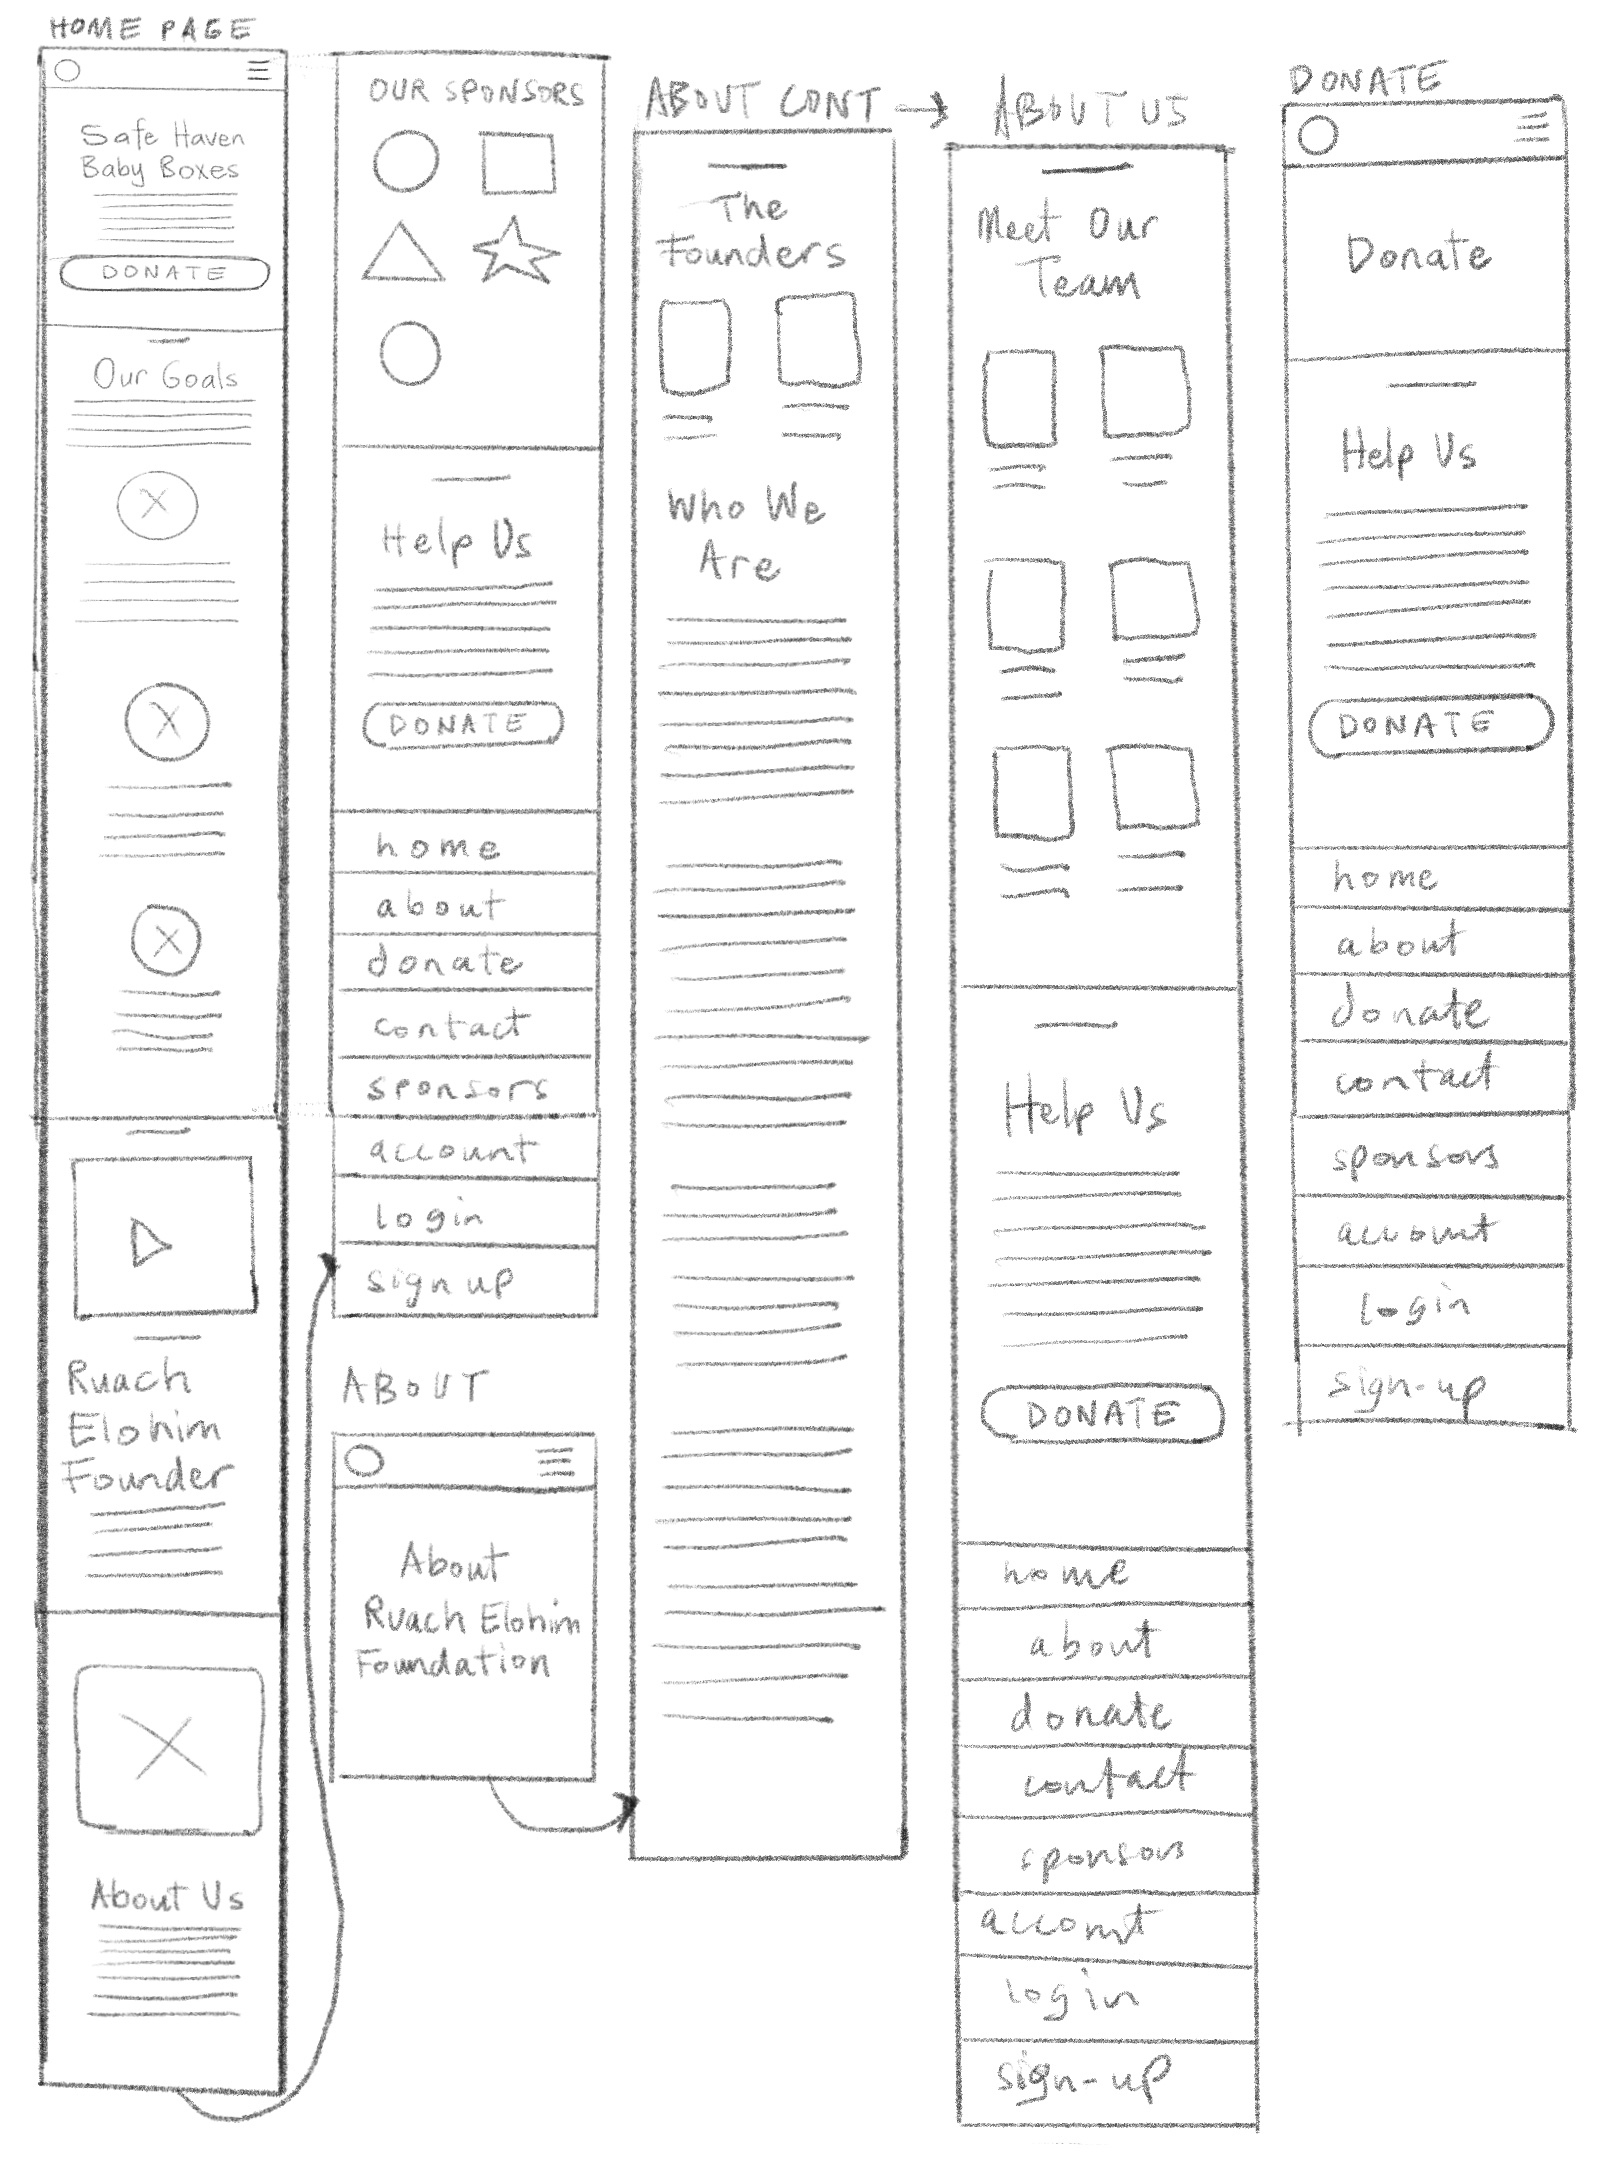 HOME PAGE
Safe Haven
Baby Boxes
DONATE
Our Goals
Ruach
Elohim
Founder
About Us
OUR SPONSORS
Help Us
DONATE
home
about
donate
contact
sponsors
account
login
sign up
ABOUT
About
Ruach Elohim
Foundation
ABOUT CONT
The
Founders
Who We
Are
ABOUT US
Meet Our
Team
Help Us
DONATE
home
about
donate
contact
sponsors
account
login
sign-up
DONATE
Donate
Help Us
DONATE
home
about
donate
contact
sponsors
account
login
sign-up